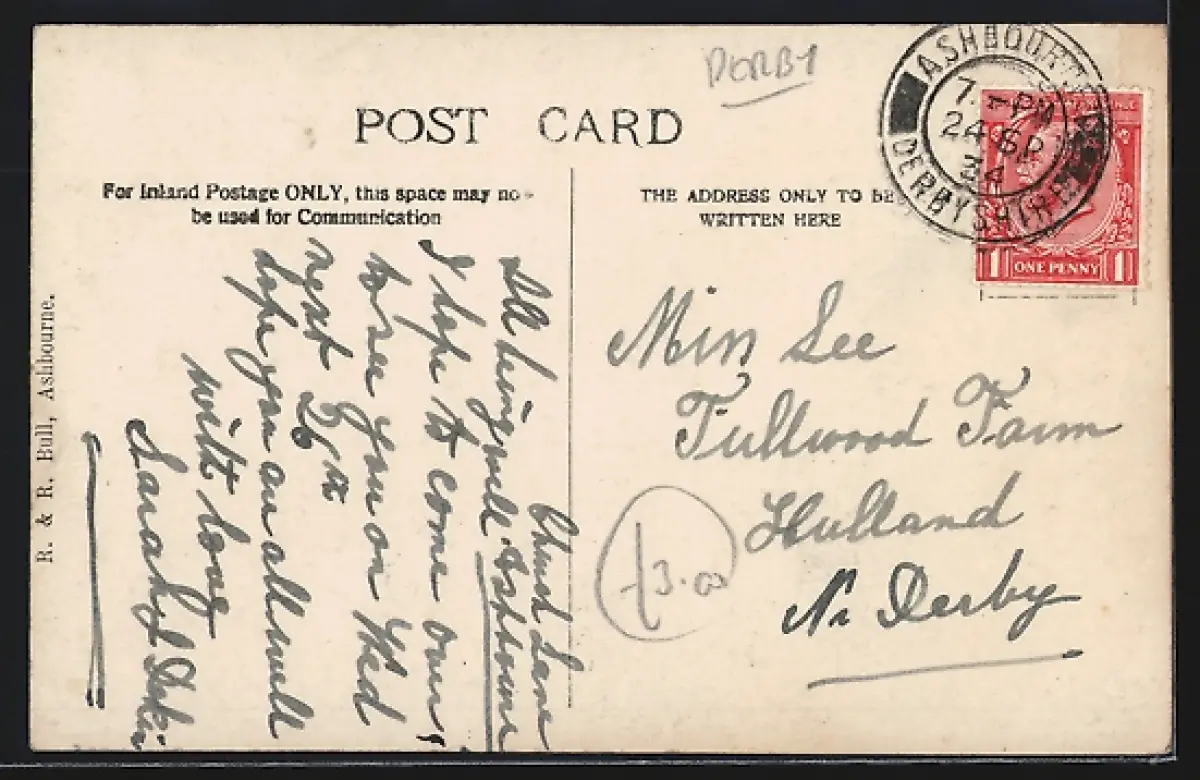 DERBY
POST CARD
For Inland Postage ONLY, this space may no
be used for Communication
THE ADDRESS ONLY TO BE
WRITTEN HERE
ASHBOURNE
7. - PM
24 SP
34
DERBYSHIRE
1 ONE PENNY 1
Church Lane
Ashbourne
All being well
I hope to come over
to see you on Wed
next 26th
hope you are all well
with love
Sarah J Dakin
Miss Lee
Tullwood Farm
Hulland
Nr Derby
£3.00
R. & R. Bull, Ashbourne.